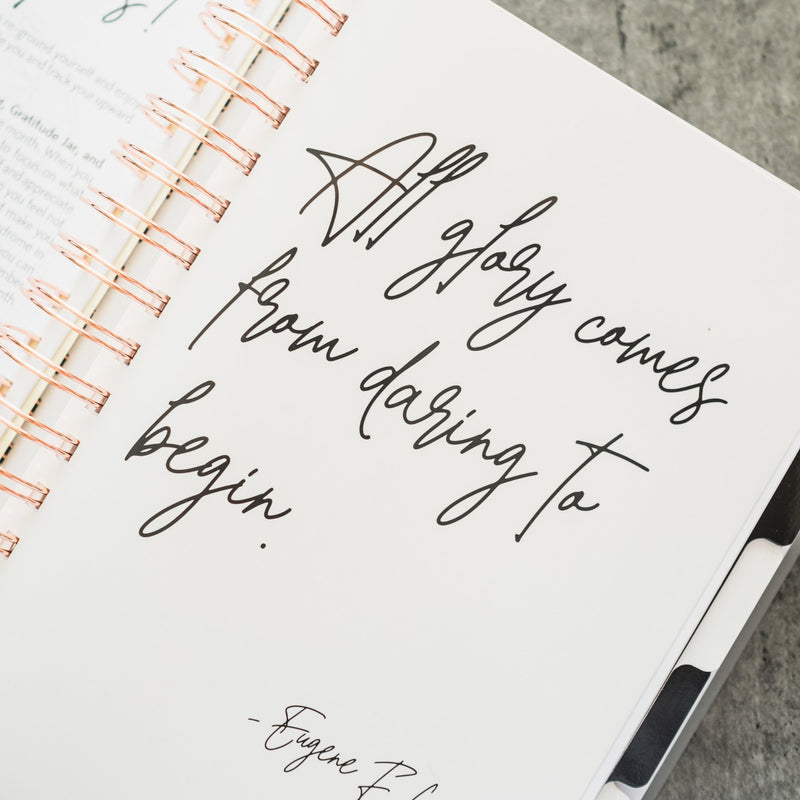 re-ground yourself and enjoy
you and track your upward
Gratitude Jar, and
month. When you
to focus on what
and appreciate
you feel not
make you
drome in
you can
month
All glory comes
from daring to
begin.
- Eugene F